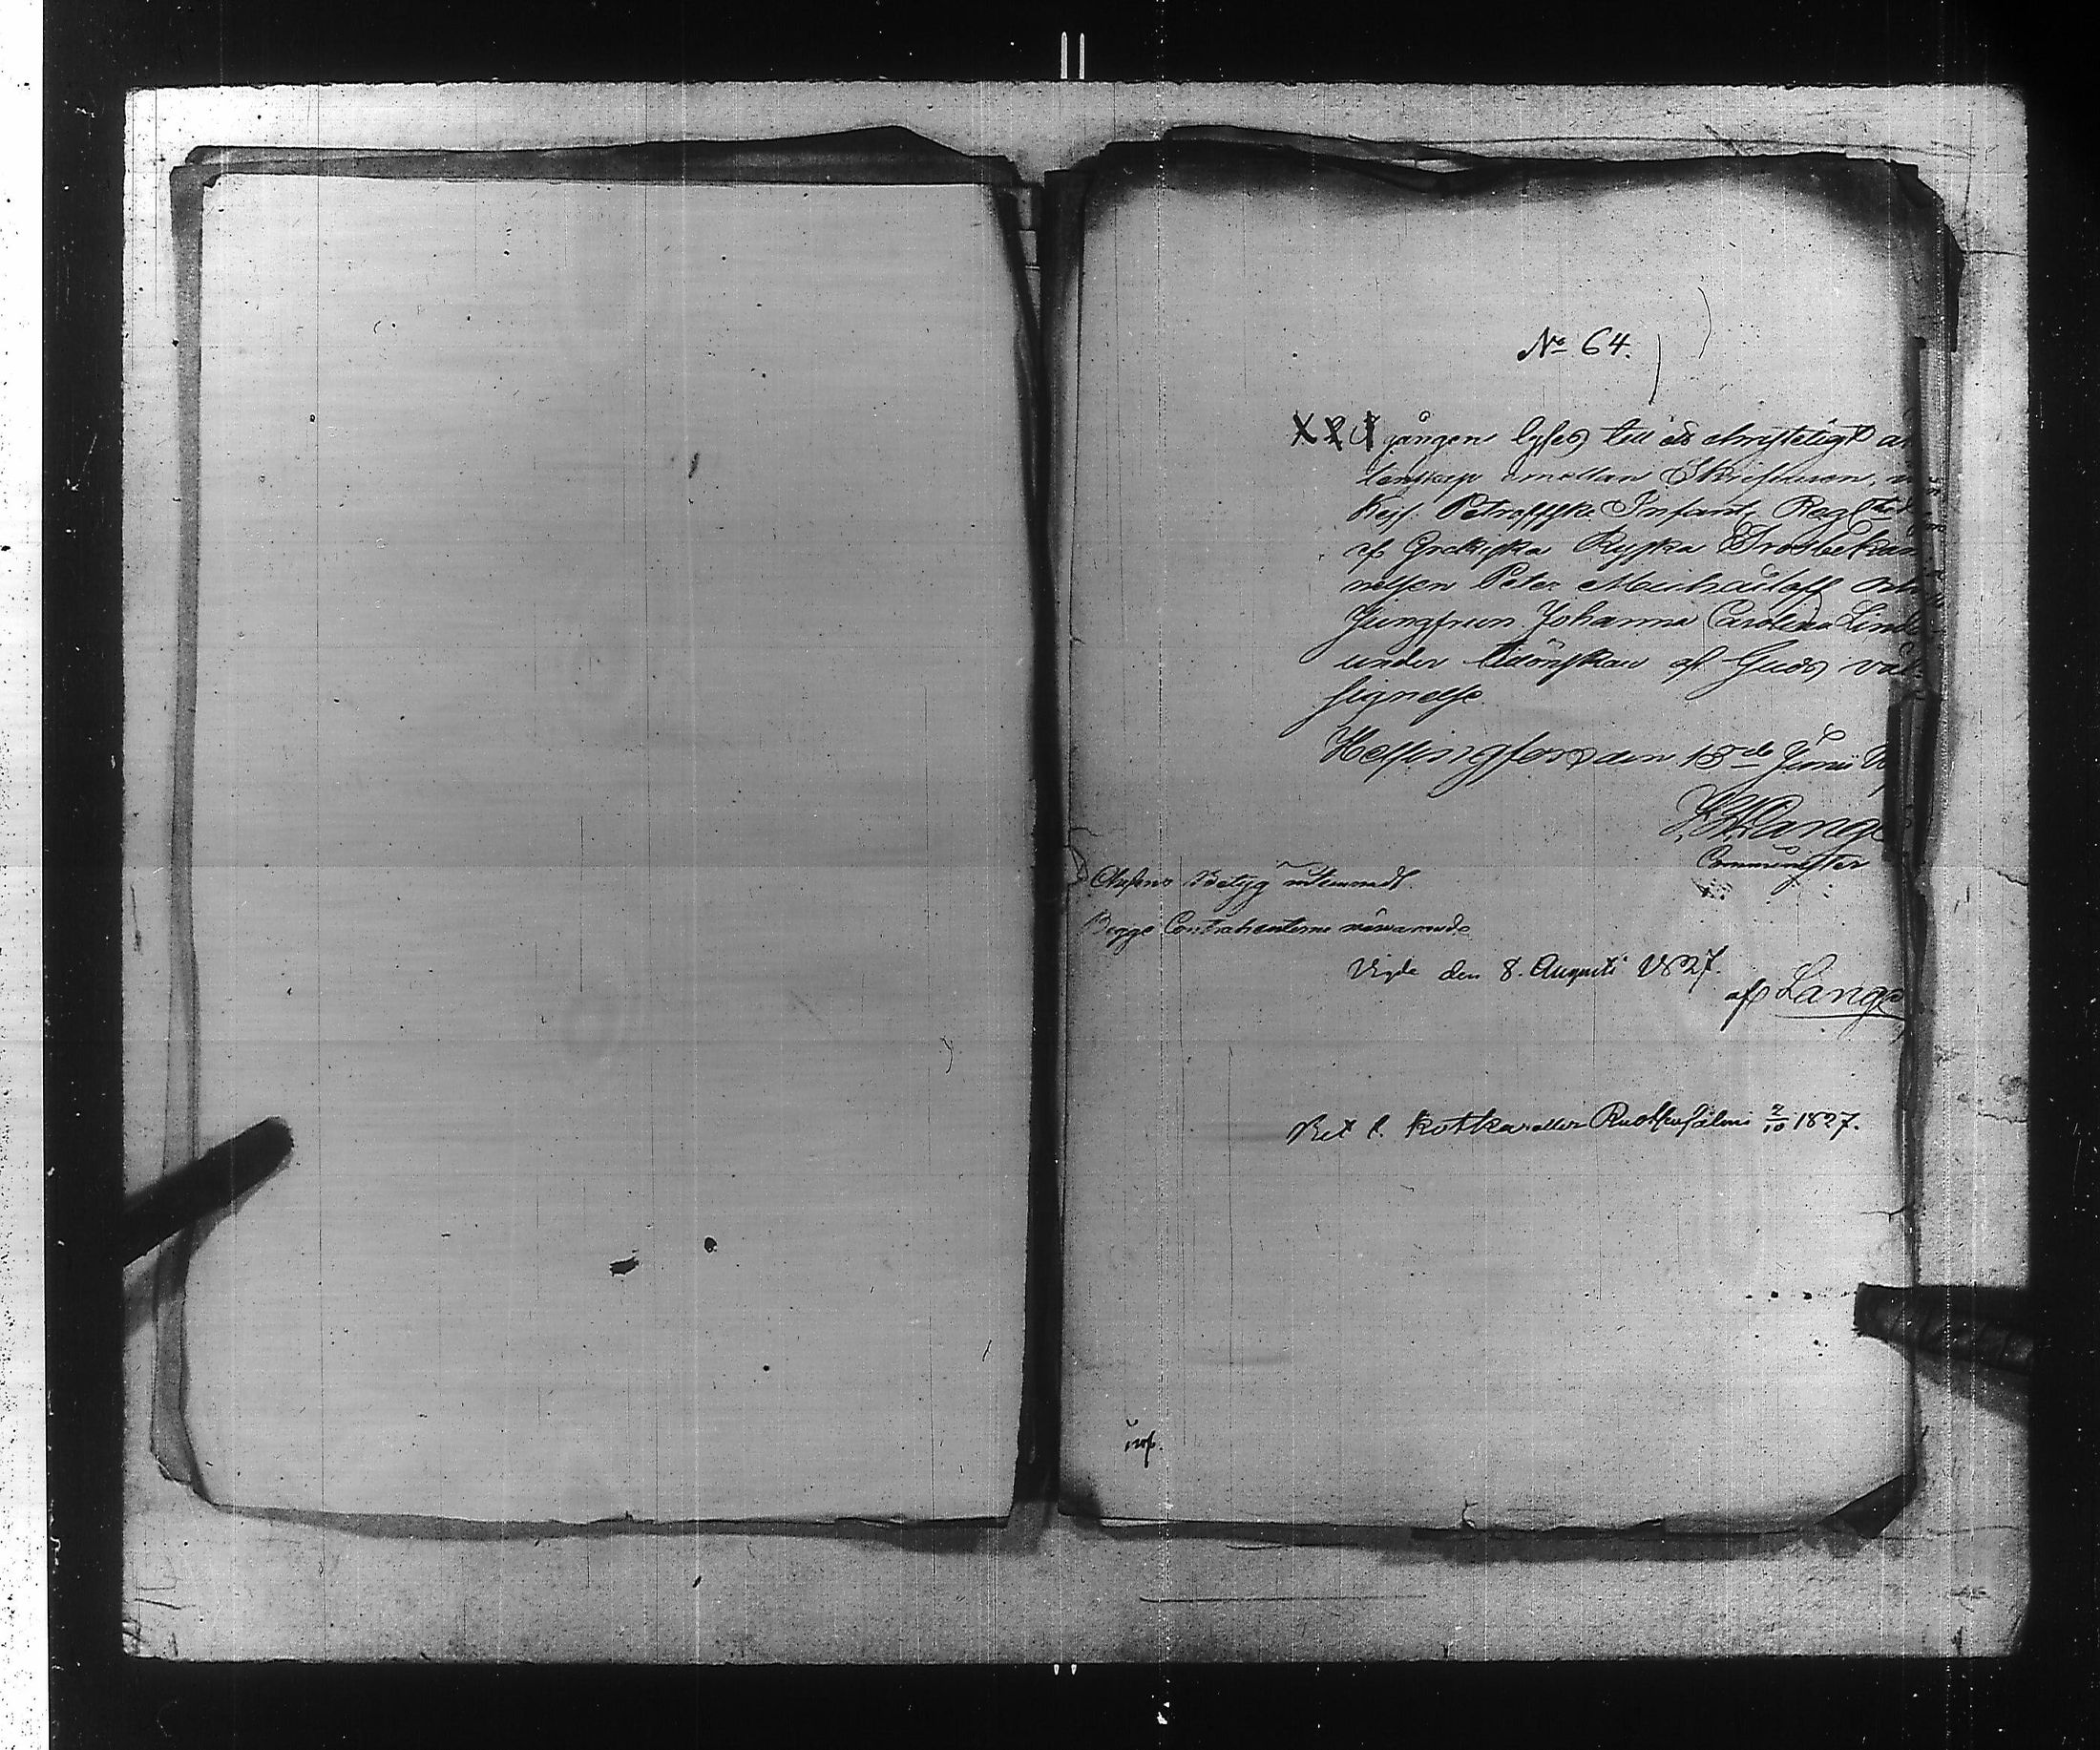 No 64.
gången lyses till ett christeligt
tenskap emellan Skrifvaren, vid
Kejs. Petroffske Infant. Reg.
af Grekiska Ryska Trosbekän
nelsen Peter Meichailoff och
Jungfrun Johanna Carolina Lind
under tillönskan af Guds väl
signelse
Helsingfors den 13de Junii
Lange
Comminister
Chefens Betyg
Begge Contrahenterne närvarande
Vigde den 8. Augusti 1827.
af Lange
Bet t. Kotka eller 2/10 1827.